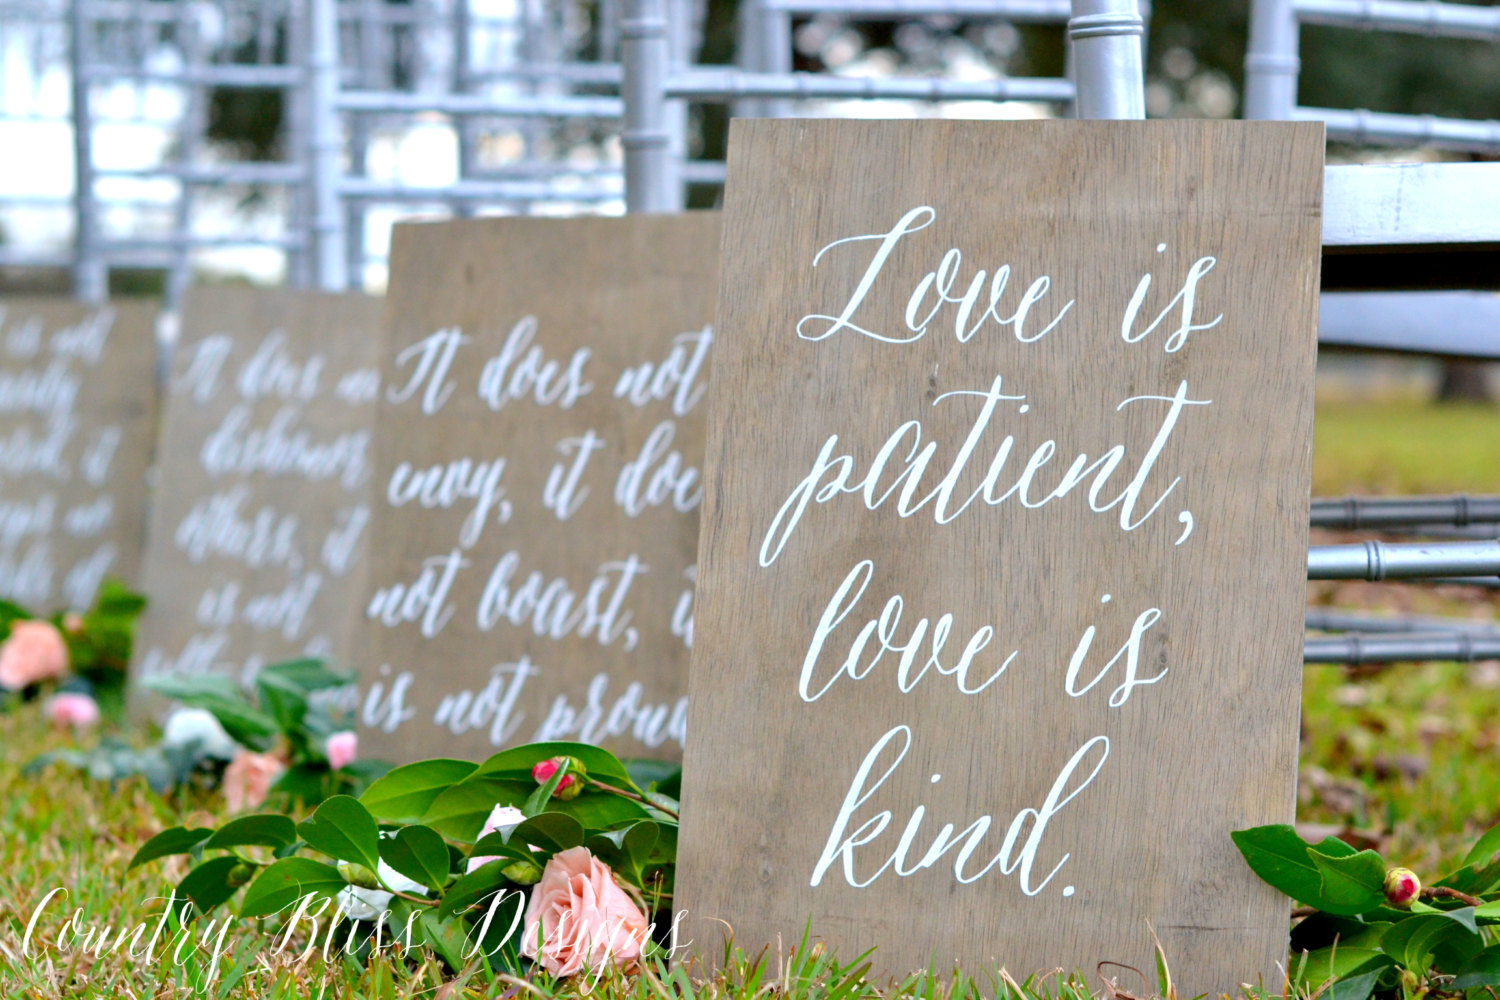 Love is
patient,
love is
kind.
It does not
envy, it doe
not boast, i
is not proud
It does no
dishonor
others, it
is not
t is not
it
Country Bliss Designs